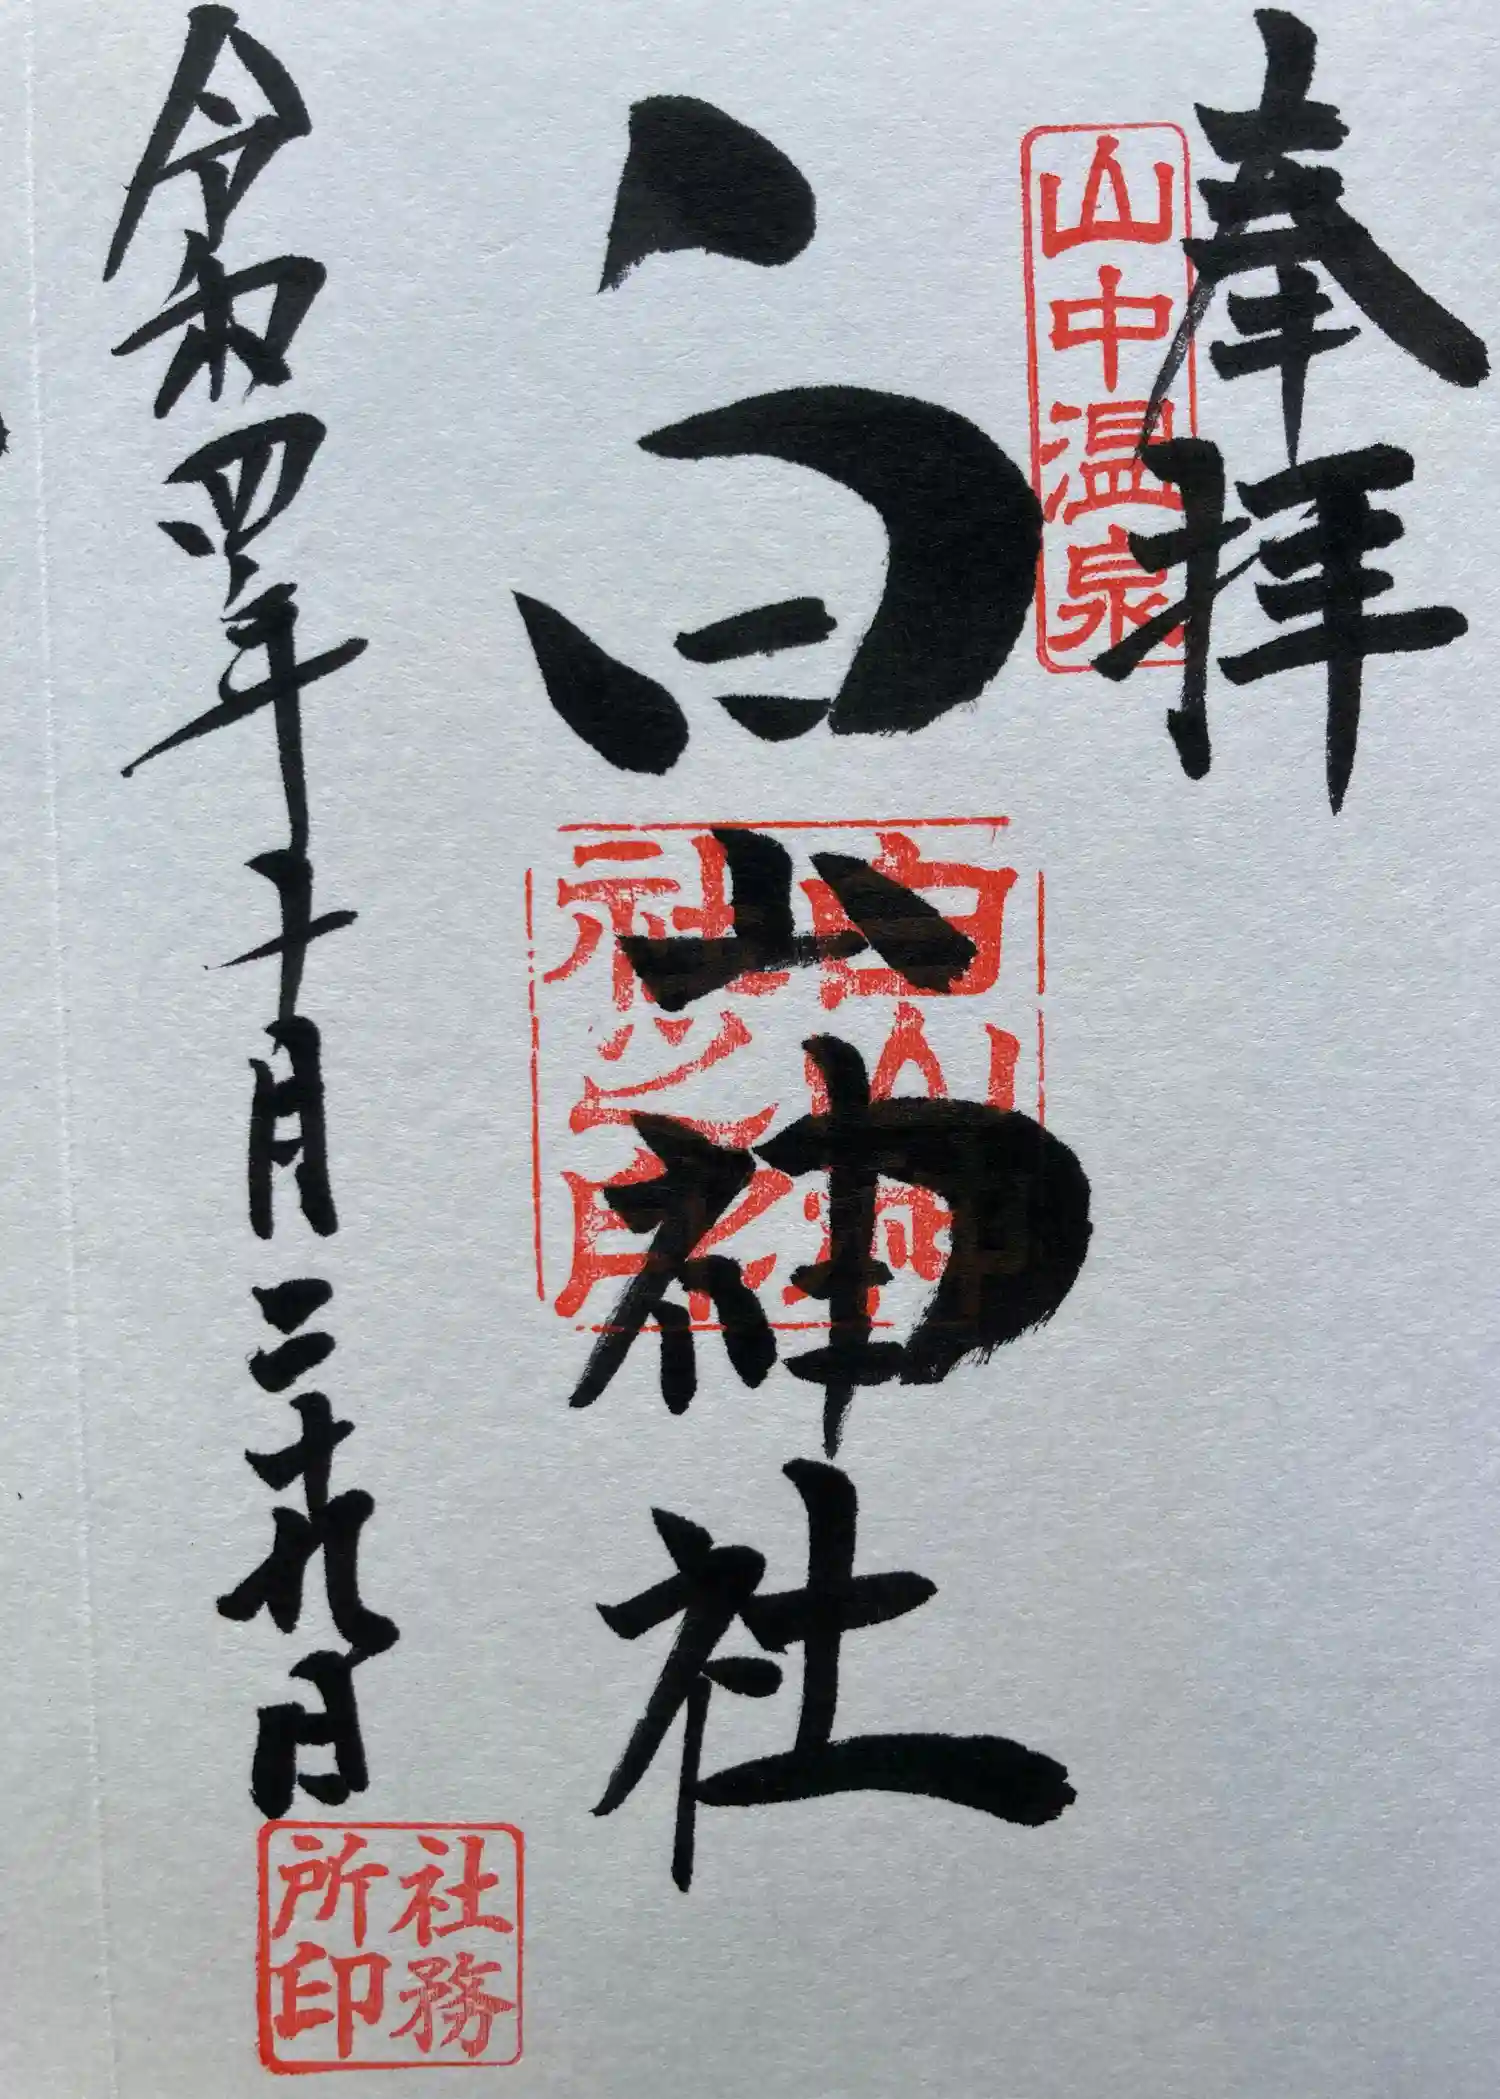 奉拝
山中温泉
白山神社
白山神
社之印
令和四年十月二十九日
社務
所印